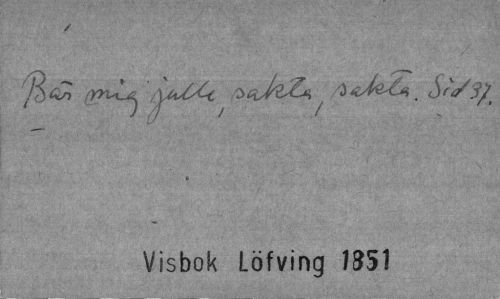 Bär mig julle, sakta, sakta. Sid 37.
Visbok Löfving 1851